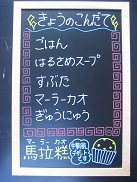 きょうのこんだて
ごはん
はるさめスープ
すぶた
マーラーカオ
ぎゅうにゅう
マーラーカオ
馬拉糕